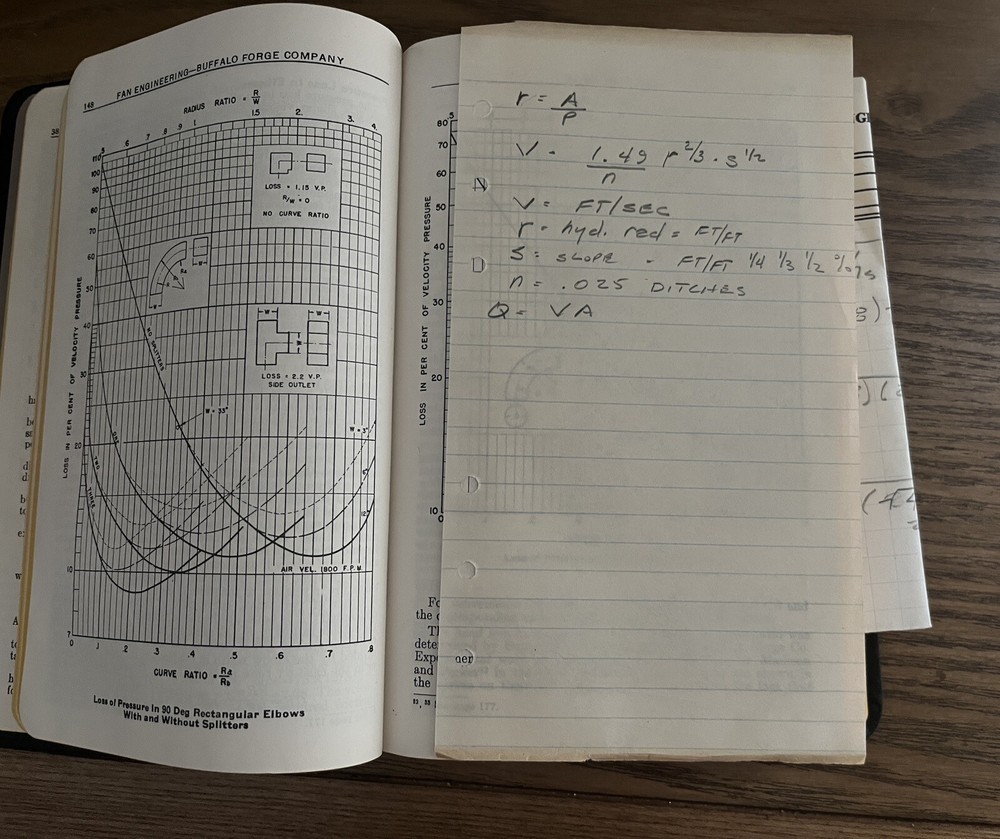 148 FAN ENGINEERING—BUFFALO FORGE COMPANY
RADIUS RATIO = R/W
.5 .6 .7 .8 .9 1. 1.5 2. 3. 4.
110
100
90
80
70
60
50
40
30
20
10
7
LOSS IN PER CENT OF VELOCITY PRESSURE
LOSS = 1.15 V.P.
R/W = 0
NO CURVE RATIO
W
W
NO SPLITTERS
W W
W
LOSS = 2.2 V.P.
SIDE OUTLET
W = 33"
W = 3"
6"
12"
ONE
TWO
THREE
AIR VEL. 1800 F.P.M.
0 .1 .2 .3 .4 .5 .6 .7 .8
CURVE RATIO = Ra/Rb
Loss of Pressure in 90 Deg Rectangular Elbows
With and Without Splitters
80
70
60
50
40
30
20
10
0
LOSS IN PER CENT OF VELOCITY PRESSURE
r = A/P
V = 1.49/n r 2/3 · s 1/2
V = FT/SEC
r = hyd. rad = FT/FT
S = SLOPE - FT/FT 1/4 1/3 1/2
n = .025 DITCHES
Q = VA
the
and
the
177.